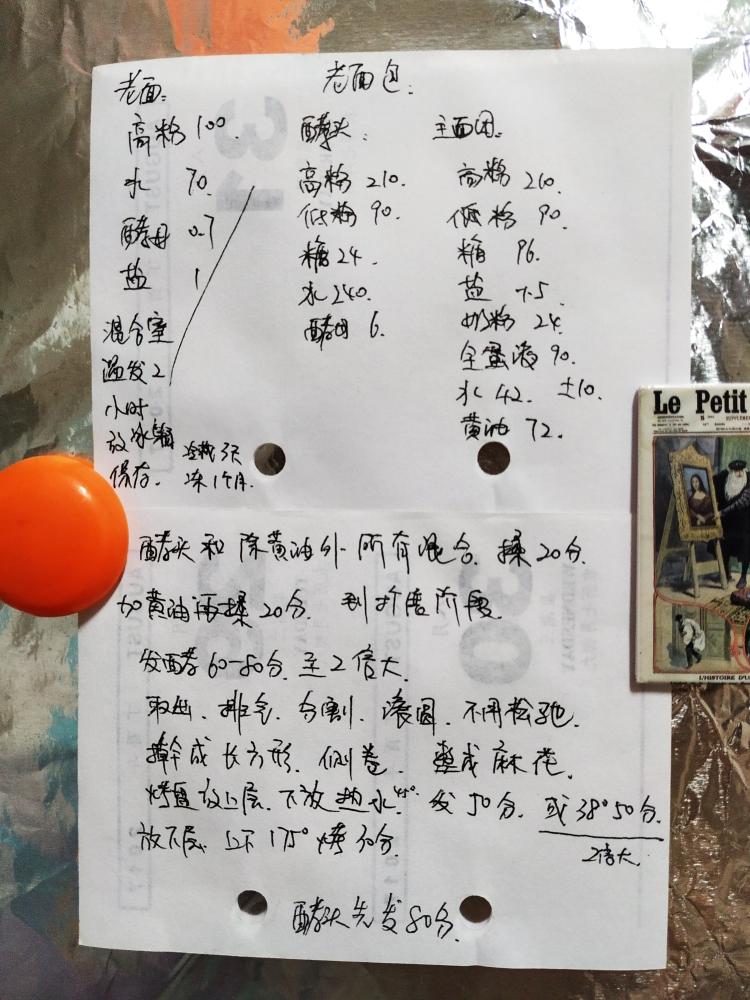 老面包:
老面:
高粉 100.
水 70.
酵母 0.7
盐 1
混合室
温发2
小时
放冰箱
保存.
冷藏3天
冻1个月.
酵头:
高粉 210.
低粉 90.
糖 24.
水 240.
酵母 6.
主面团:
高粉 210.
低粉 90.
糖 96.
盐 7.5
奶粉 24.
全蛋液 90.
水 42. ±10.
黄油 72.
酵头和除黄油外所有混合. 揉20分.
加黄油再揉20分. 到扩展阶段.
发酵60-80分. 至2倍大.
取出. 排气. 分割. 滚圆. 不用松弛.
擀成长方形. 侧卷. 整成麻花.
烤盘放上层. 下放热水 发50分. 或38°50分.
2倍大.
放下层. 上下175°烤30分.
酵头先发80分.
Le Petit
SUPPLEMEN
L'HISTOIRE D'U
31
30
WEDNESDAY
AUGUST